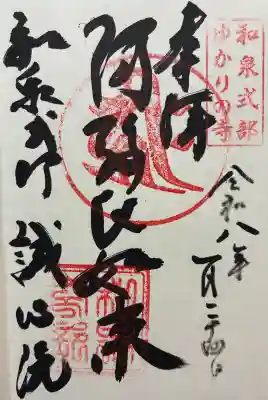 和泉式部
ゆかりの寺
奉拝
令和八年一月二十四日
阿弥陀如来
和泉式部 誠心院